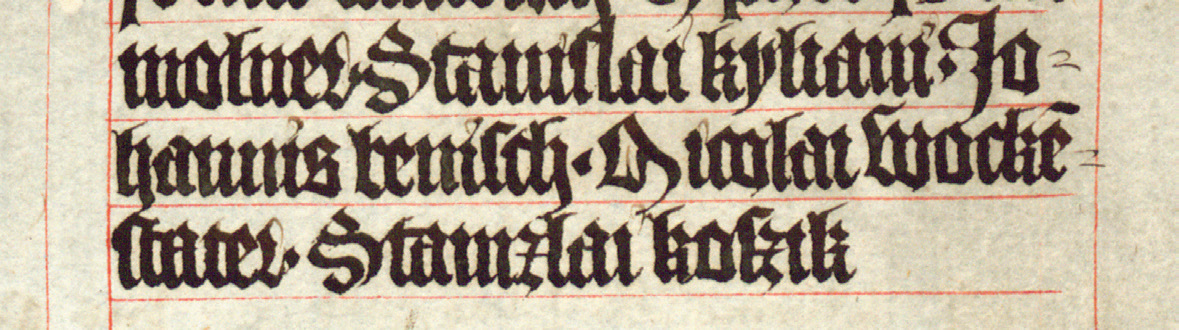 molner· Stanislai kyliani· Jo=
hannis benisch· Nicolai wockē=
stater· Stanizlai kosik